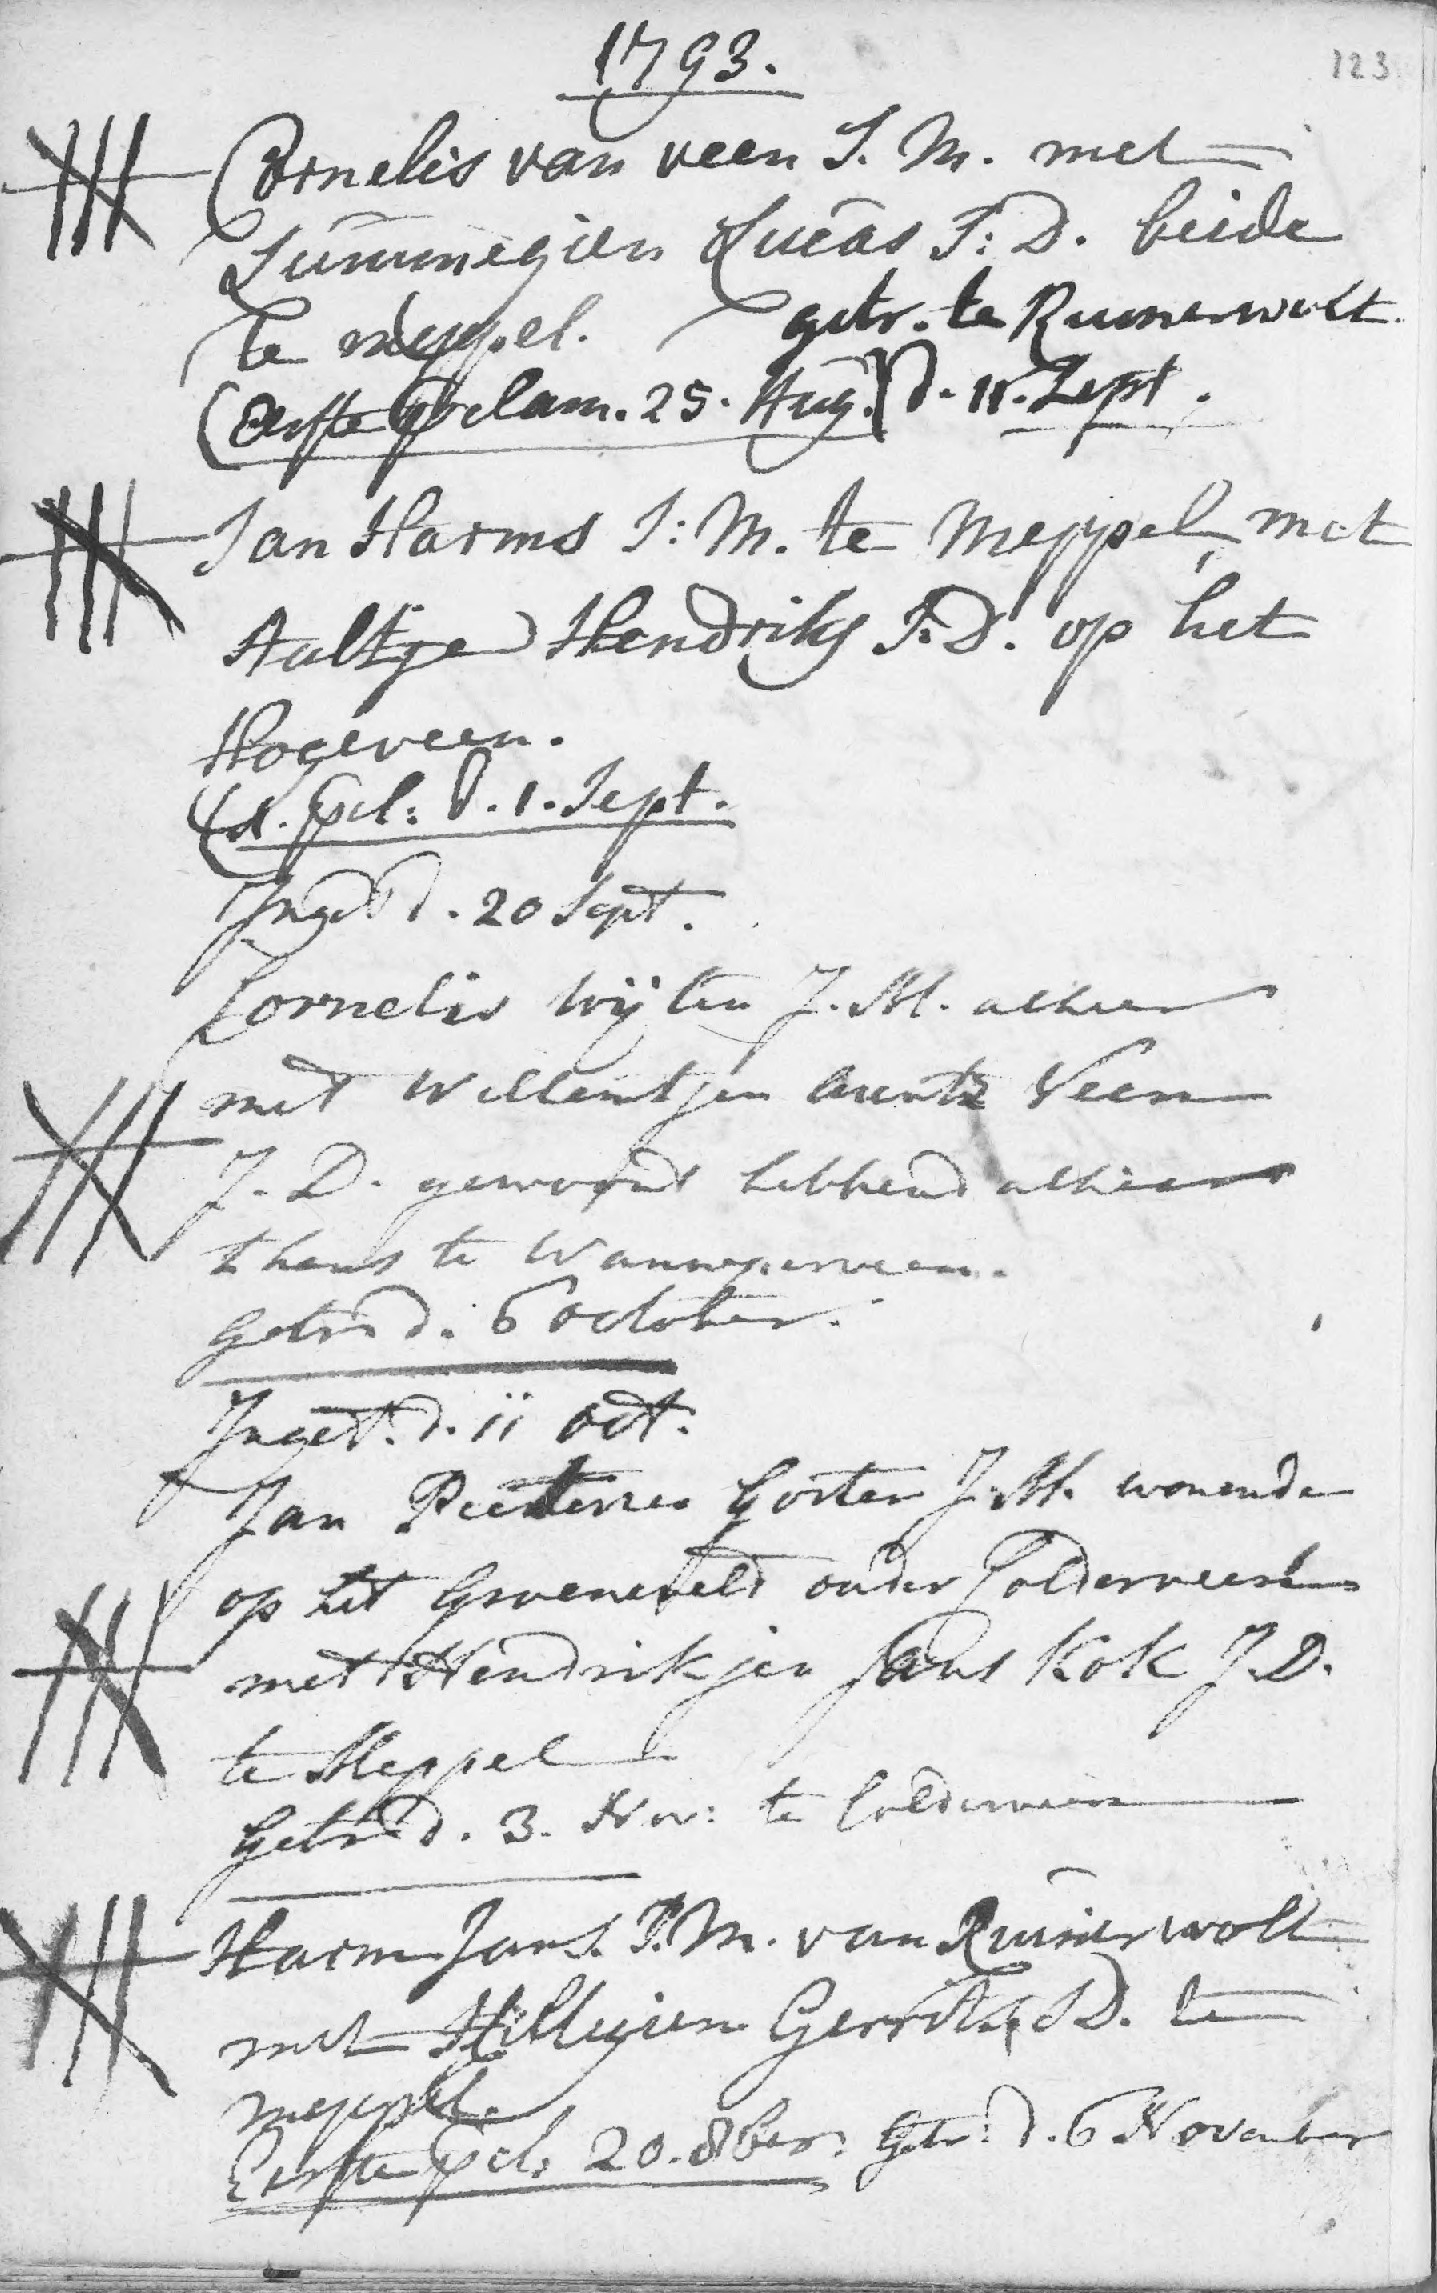 1793.
123
Cornelis van veen J. M. met
Lummegien Lucas J: D. beide
te meppel. getr. te Ruinerwolt
(Eerste Proclam. 25. Aug.) d. 11. Sept.
Jan Harms J: M. te Meppel, met
Aaltje Hendriks J. D. op het
Hogeveen.
(1. pcl: d. 1. Sept.
Inget d. 20 Sept.
Cornelis Wijten J. M. alhier
met Willemtjen Arents Veen
J. D. gewoond hebbend alhier
thans te Wanneperveen.
Getr. d. 6 october.
Inget. d. 11 oct.
Jan Peeters Gorter J. M. wonende
op het Groeneveld onder Colderveen
met Hendrikjen Jans Kok J. D.
te Meppel
Getr. d. 3. Nov: te Colderveen
Harm Jans. J. M. van Ruinerwolt
met Hilligien Gerrits JD. te
meppel.
Eerste pcl: 20. 8ber: Getr: d. 6 November